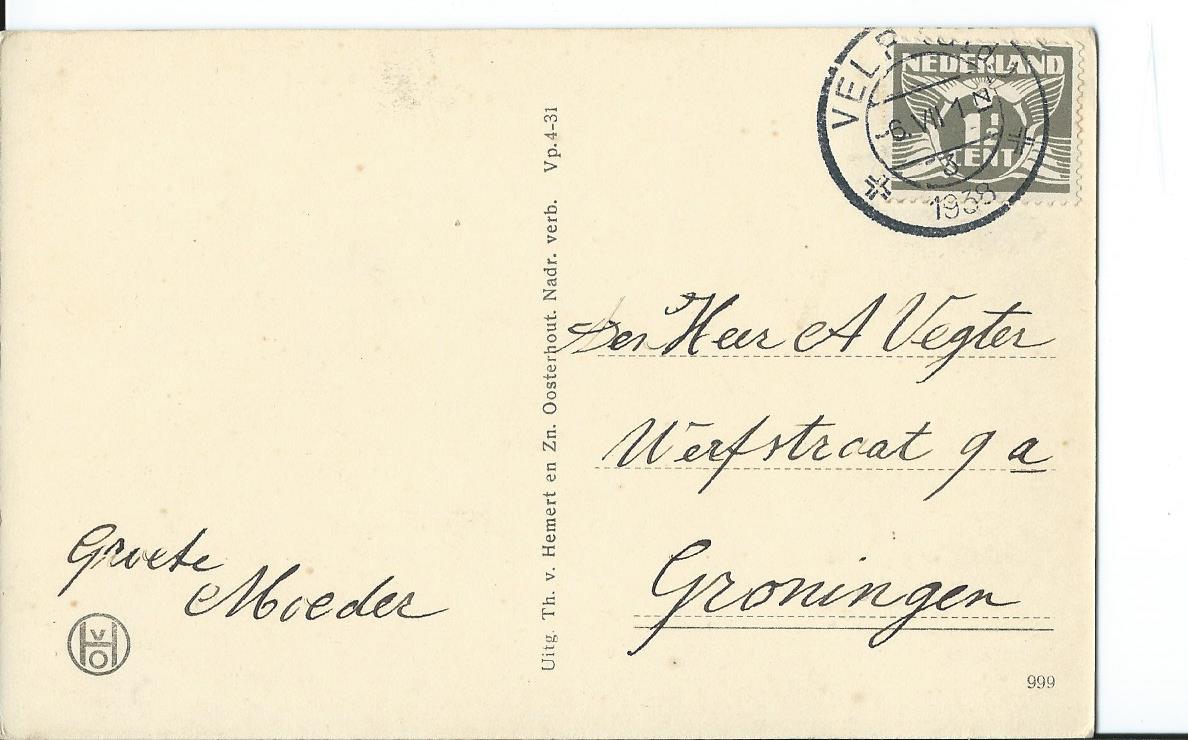 VELP
6 VII 1 N
3
1938
NEDERLAND
1½
CENT
Den Heer A Vegter
Werfstraat 9 a
Groningen
Groete
Moeder
Uitg. Th. v. Hemert en Zn. Oosterhout. Nadr. verb. Vp.4-31
VHO
999